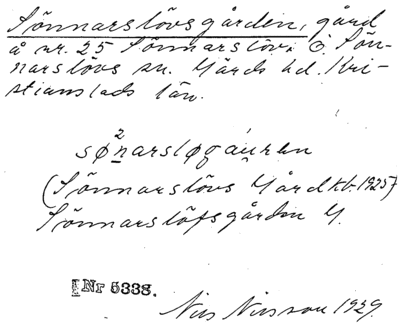 Sönnarslövsgården, gård
å nr. 25 Sönnarslöv, Ö. Sön-
narslövs sn. Gärds hd. Kri-
stianstads län.
2
(Sönnarslövs Gård kb. 1925)
Sönnarslöfsgården
Nr 5338.
Nils Nilsson 1929.